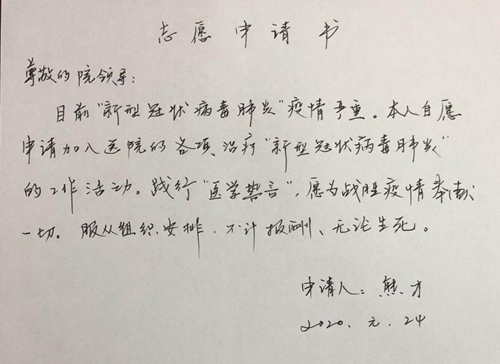 志愿申请书
尊敬的院领导：
目前“新型冠状病毒肺炎”疫情严重。本人自愿
申请加入医院的各项治疗“新型冠状病毒肺炎”
的工作活动。践行“医学誓言”，愿为战胜疫情奉献
一切。服从组织安排，不计报酬、无论生死。
申请人：熊才
2020.元.24